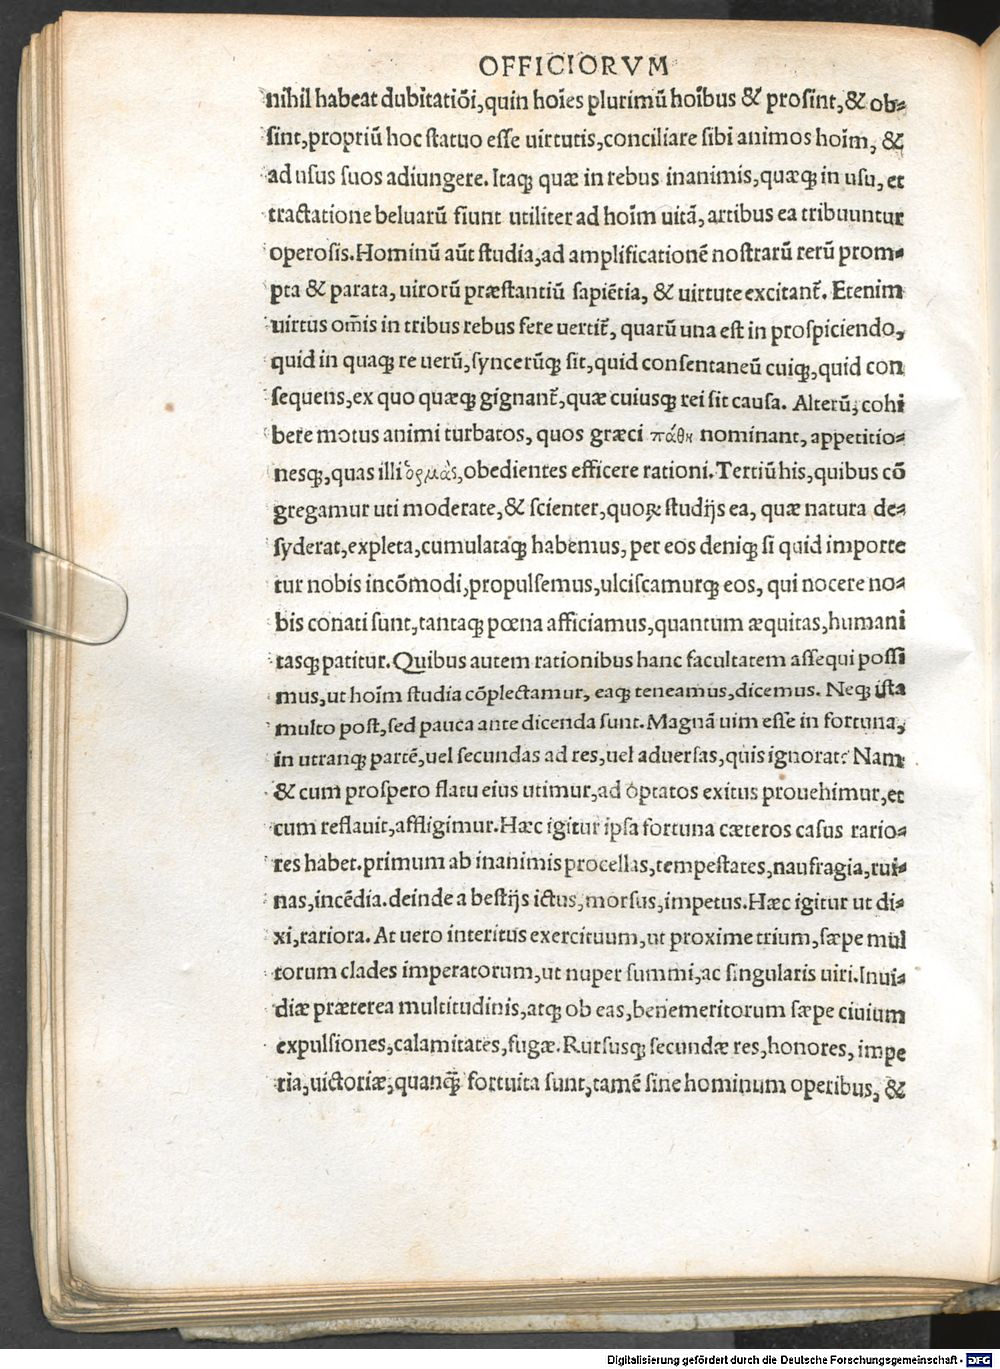 OFFICIORVM
nihil habeat dubitatiõi,quin hoĩes plurimũ hoĩbus & prosint,& ob-
sint,propriũ hoc statuo esse uirtutis,conciliare sibi animos hoĩm, &
ad usus suos adiungere. Itaqꝫ quæ in rebus inanimis,quæqꝫ in usu, et
tractatione beluarũ fiunt utiliter ad hoĩm uitã, artibus ea tribuuntur
operosis.Hominũ aũt studia,ad amplificationẽ nostrarũ rerũ prom-
pta & parata, uirorũ præstantiũ sapiẽtia, & uirtute excitant̃. Etenim
uirtus om̃is in tribus rebus fere uertit̃, quarũ una est in prospiciendo,
quid in quaqꝫ re uerũ,syncerũqꝫ sit,quid consentaneũ cuiqꝫ,quid con
sequens,ex quo quæqꝫ gignant̃,quæ cuiusqꝫ rei sit causa. Alterũ, cohi
bere motus animi turbatos, quos græci πάθη nominant, appetitio-
nesqꝫ,quas illi ὁρμὰς,obedientes efficere rationi.Tertiũ his,quibus cõ
gregamur uti moderate,& scienter,quoꝝ studijs ea, quæ natura de-
syderat,expleta,cumulataqꝫ habemus, per eos deniqꝫ si quid importe
tur nobis incõmodi,propulsemus,ulciscamurqꝫ eos, qui nocere no-
bis conati sunt,tantaqꝫ pœna afficiamus,quantum æquitas,humani
tasqꝫ patitur.Quibus autem rationibus hanc facultatem assequi possi
mus,ut hoĩm studia cõplectamur, eaqꝫ teneamus,dicemus. Neqꝫ ista
multo post,sed pauca ante dicenda sunt.Magnã uim esse in fortuna,
in utranqꝫ partẽ,uel secundas ad res,uel aduersas,quis ignorat? Nam
& cum prospero flatu eius utimur,ad optatos exitus prouehimur,et
cum reflauit,affligimur.Hæc igitur ipsa fortuna cæteros casus rario-
res habet.primum ab inanimis procellas,tempestates,naufragia,rui-
nas,incẽdia.deinde a bestijs ictus,morsus,impetus.Hæc igitur ut di-
xi,rariora. At uero interitus exercituum,ut proxime trium,sæpe mul
torum clades imperatorum,ut nuper summi,ac singularis uiri.Inui-
diæ præterea multitudinis,atqꝫ ob eas,benemeritorum sæpe ciuium
expulsiones,calamitates,fugæ.Rursusqꝫ secundæ res,honores, impe
ria,uictoriæ,quanqꝫ̃ fortuita sunt,tamẽ sine hominum operibus, &
Digitalisierung gefördert durch die Deutsche Forschungsgemeinschaft - DFG